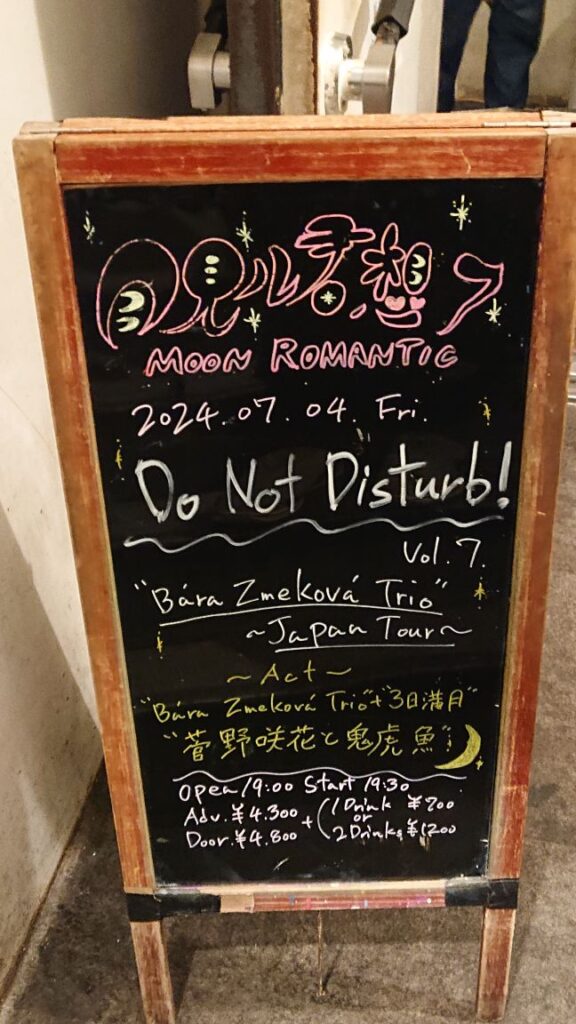 月見ル君想フ
MOON ROMANTIC
2024.07.04. Fri.
Do Not Disturb!
Vol.7.
"Bára Zmeková Trio"
~Japan Tour~
~Act~
"Bára Zmeková Trio"+"3日満月"
"菅野咲花と鬼虎魚"
Open 19:00 Start 19:30
Adv. ¥4.300
Door. ¥4.800
+(1Drink ¥700
or
2Drinks ¥1200